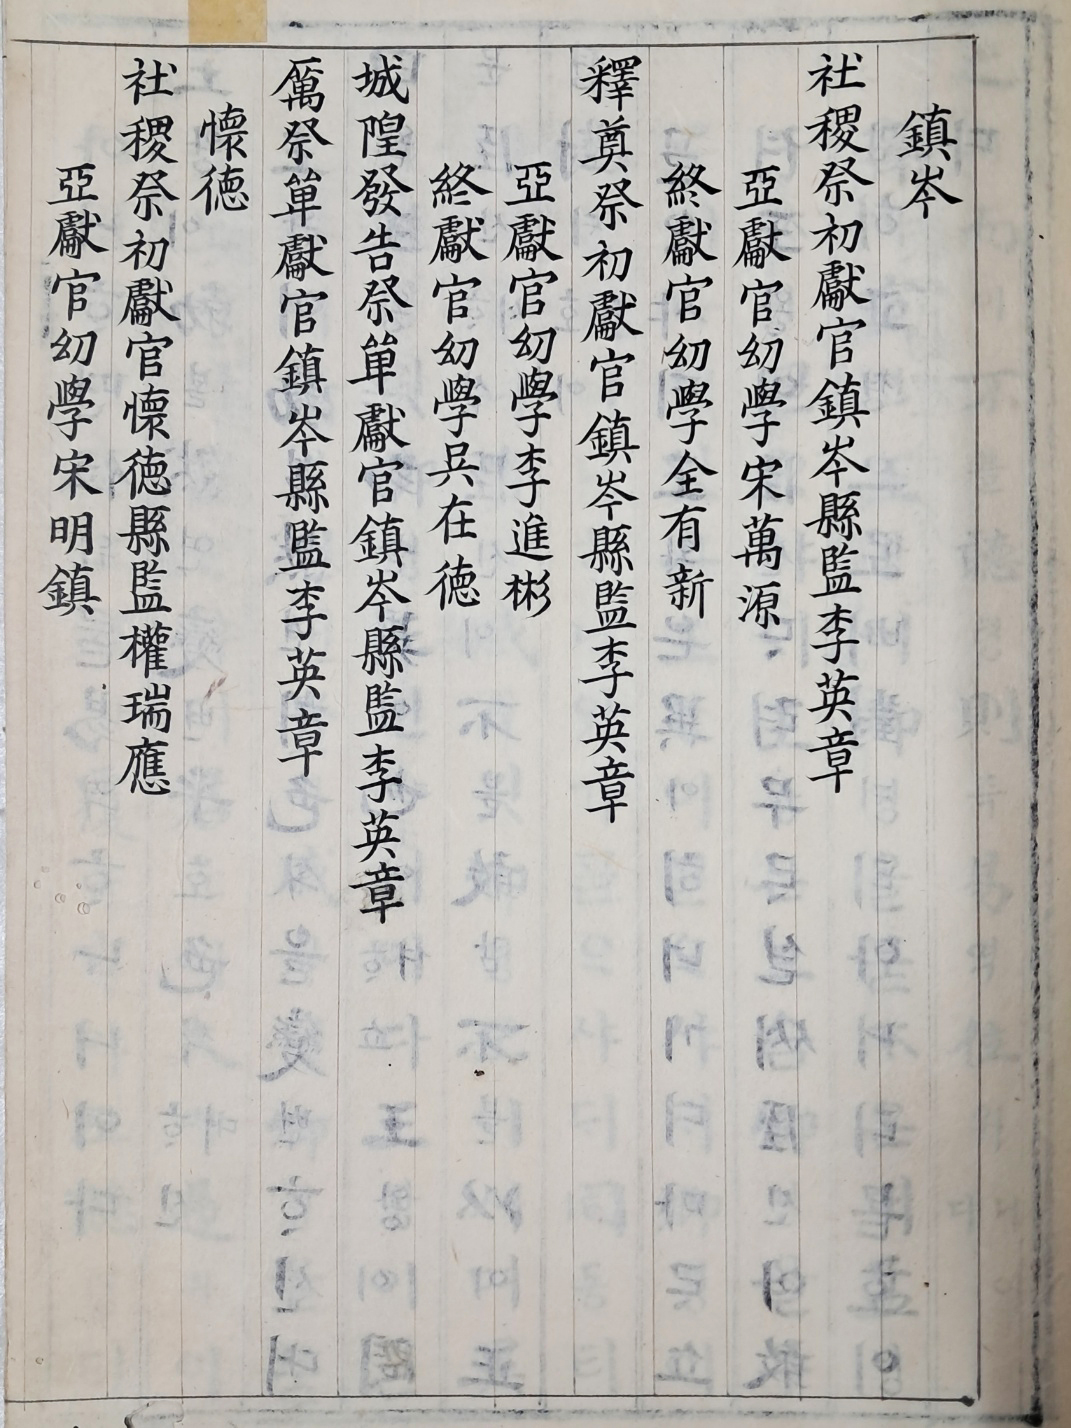 鎮岑
社稷祭初獻官鎮岑縣監李英章
亞獻官幼學宋萬源
終獻官幼學全有新
釋奠祭初獻官鎮岑縣監李英章
亞獻官幼學李進彬
終獻官幼學吳在德
城隍發告祭單獻官鎮岑縣監李英章
厲祭單獻官鎮岑縣監李英章
懷德
社稷祭初獻官懷德縣監權瑞應
亞獻官幼學宋明鎮